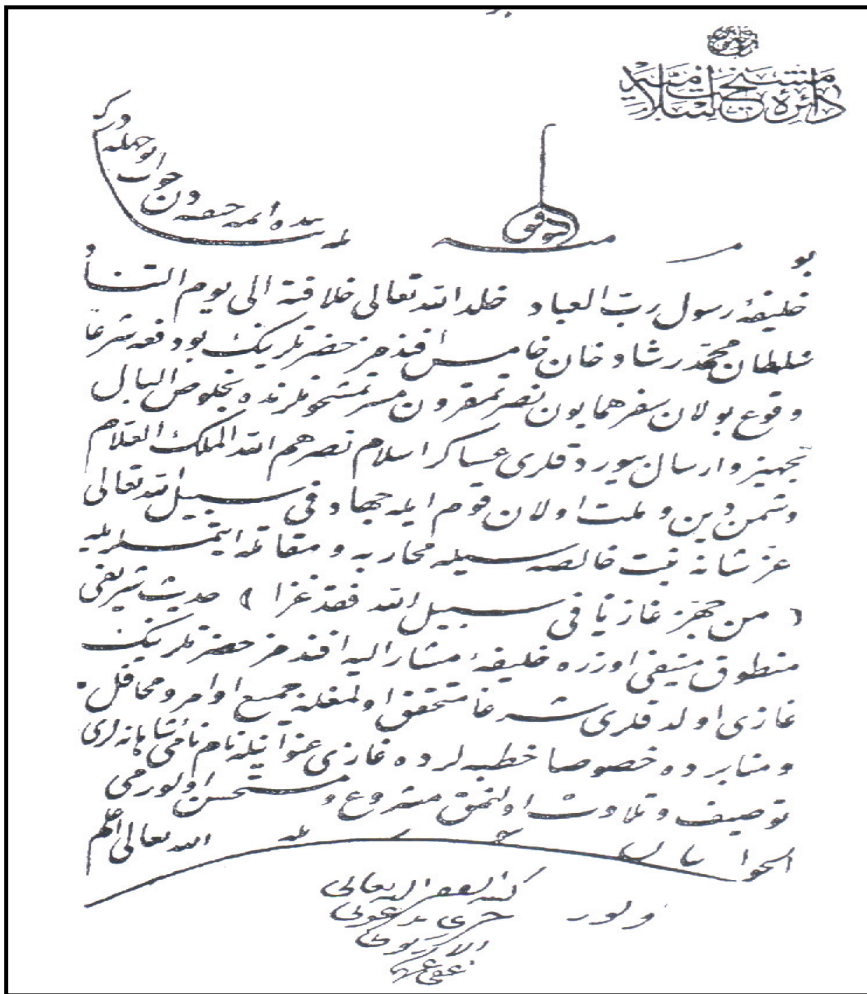 دائرۀ مشيخت اسلاميه
منه التوفيق
بو مسئله بياننده ائمۀ حنفيه دن جواب نه وجهله در كه
خليفۀ رسول رب العباد خلد الله تعالى خلافته الى يوم التناد
سلطان محمد رشاد خان خامس افندمز حضرتلرينك بو دفعه شرعا
وقوع بولان سفر همايون نصرتمقرون مسرتمشحونلرنده بخلوص البال
تجهيز و ارسال بيوردقلرى عساكر اسلام نصرهم الله الملك العلام
دشمن دين و ملت اولان قوم ايله جهاد فى سبيل الله تعالى
عز شانه نيت خالصه سيله محاربه و مقاتله ايتملريله
( من جهز غازيا فى سبيل الله فقد غزا ) حديث شريفى
منطوق منيفى اوزره خليفۀ مشار اليه افندمز حضرتلرينك
غازى اولدقلرى شرعا متحقق اولمغله جميع اوامر و محافل
و منابرده خصوصا خطبه لرده غازى عنوانيله نام نامئ شاهانه لرى
توصيف و تلاوت اولنمق مشروع و مستحسن اولورمى
الجواب الله تعالى اعلم
اولور
كتبه الفقير اليه تعالى
خيرى بن عونى
الاركوبى
عفى عنهما